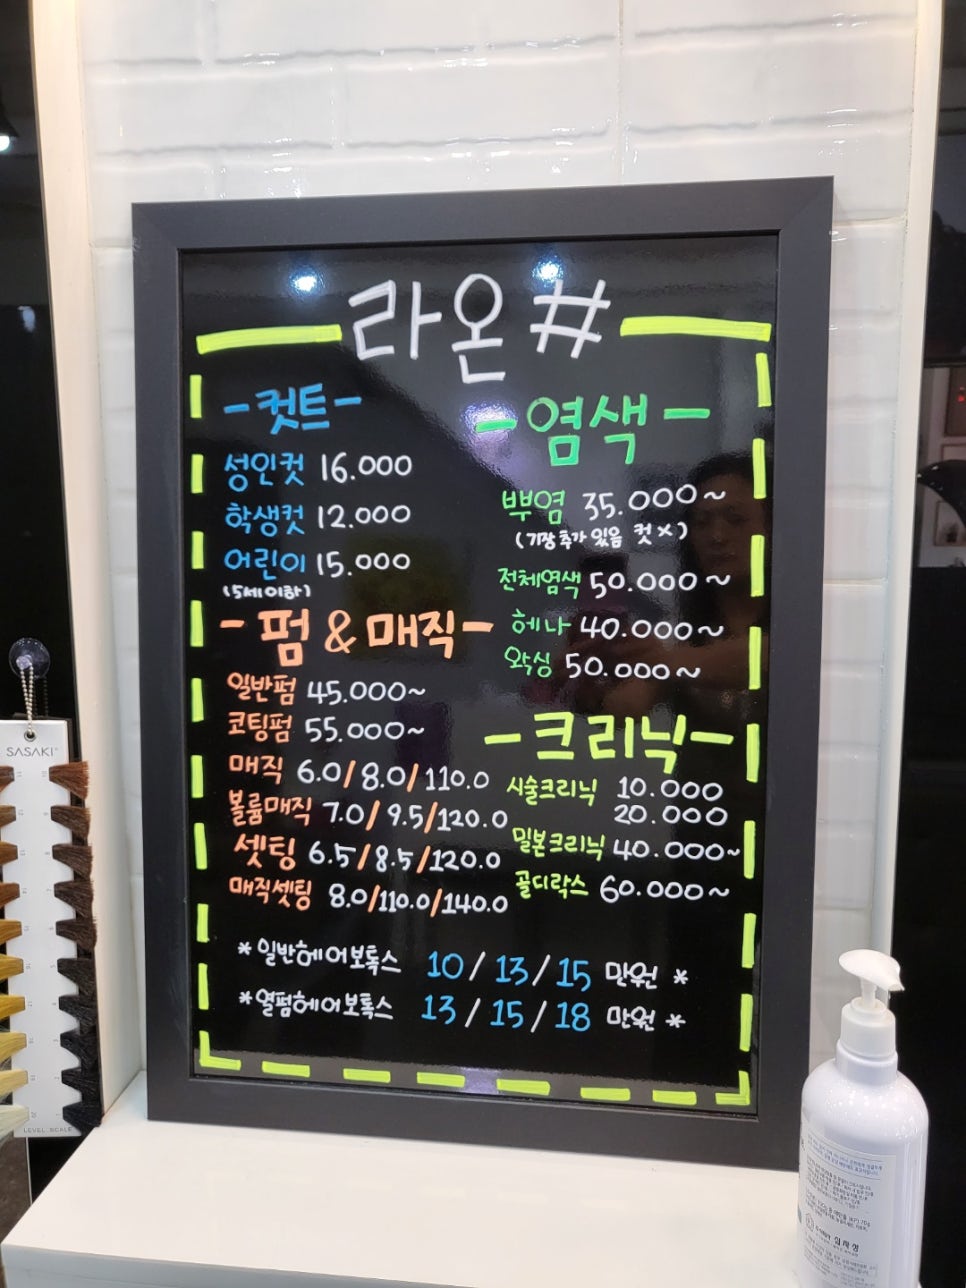 라온#
-컷트-
성인컷 16.000
학생컷 12.000
어린이 15.000
(5세이하)
-펌&매직-
일반펌 45.000~
코팅펌 55.000~
매직 6.0/8.0/110.0
볼륨매직 7.0/9.5/120.0
셋팅 6.5/8.5/120.0
매직셋팅 8.0/110.0/140.0
-염색-
뿌염 35.000~
(기장추가있음 컷×)
전체염색 50.000~
헤나 40.000~
왁싱 50.000~
-크리닉-
시술크리닉 10.000
20.000
밀본크리닉 40.000~
골디락스 60.000~
*일반헤어보톡스 10/13/15 만원*
*열펌헤어보톡스 13/15/18 만원*
SASAKI
LEVEL SCALE